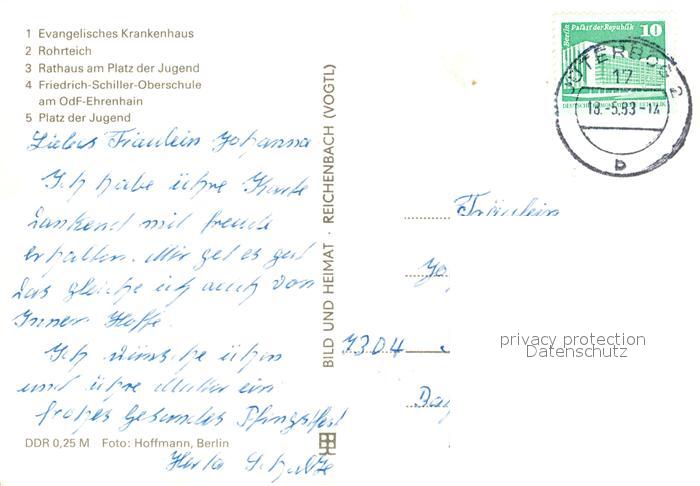 1 Evangelisches Krankenhaus
2 Rohrteich
3 Rathaus am Platz der Jugend
4 Friedrich-Schiller-Oberschule
am OdF-Ehrenhain
5 Platz der Jugend
Liebes Fräulein Johanna
Ich habe ihre Karte
dankend mit freude
erhalten. Mir get es gut
das gleiche ich auch von
Innen Hoffe.
Ich wünsche ihn
und ihre Mutter ein
frohes gesundes Pfingstfest
Herta Schulze
DDR 0,25 M Foto: Hoffmann, Berlin
BILD UND HEIMAT · REICHENBACH (VOGTL)
Berlin Palast der Republik
10
JÜTERBOG 2
17
18.-5.83-14
b
Fräulein
Jo
7304
privacy protection
Datenschutz